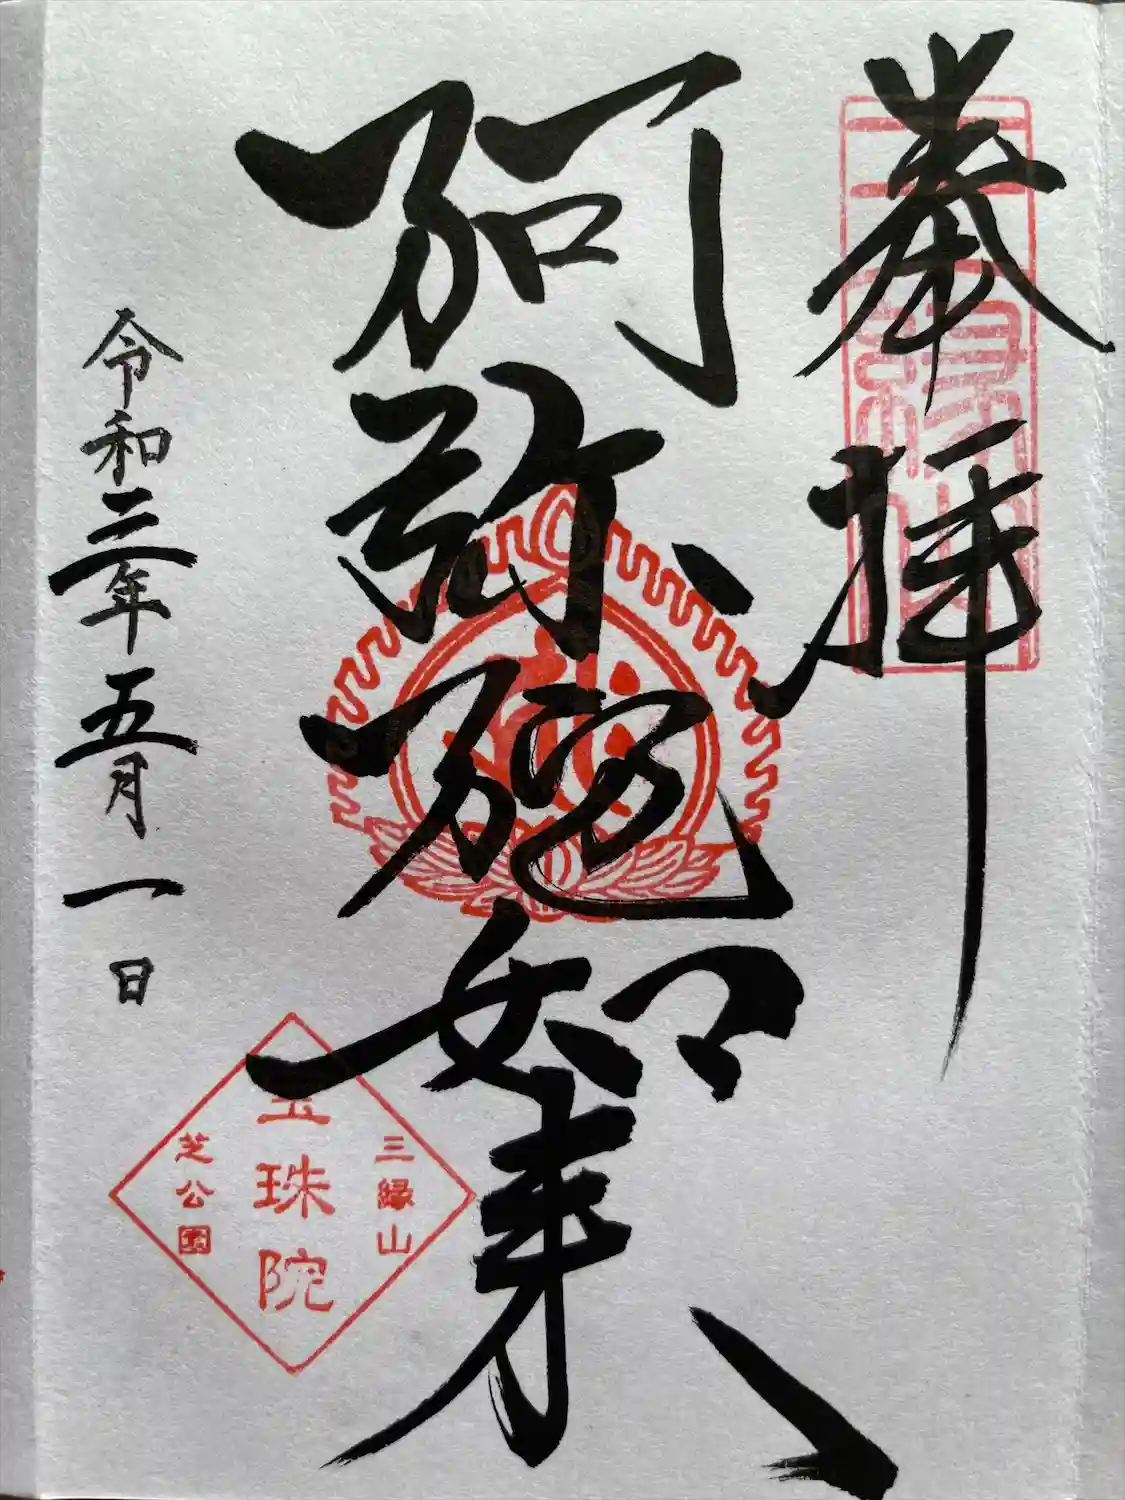 奉拝
三縁山
阿弥陀如来
令和三年五月一日
三縁山
宝珠院
芝公園